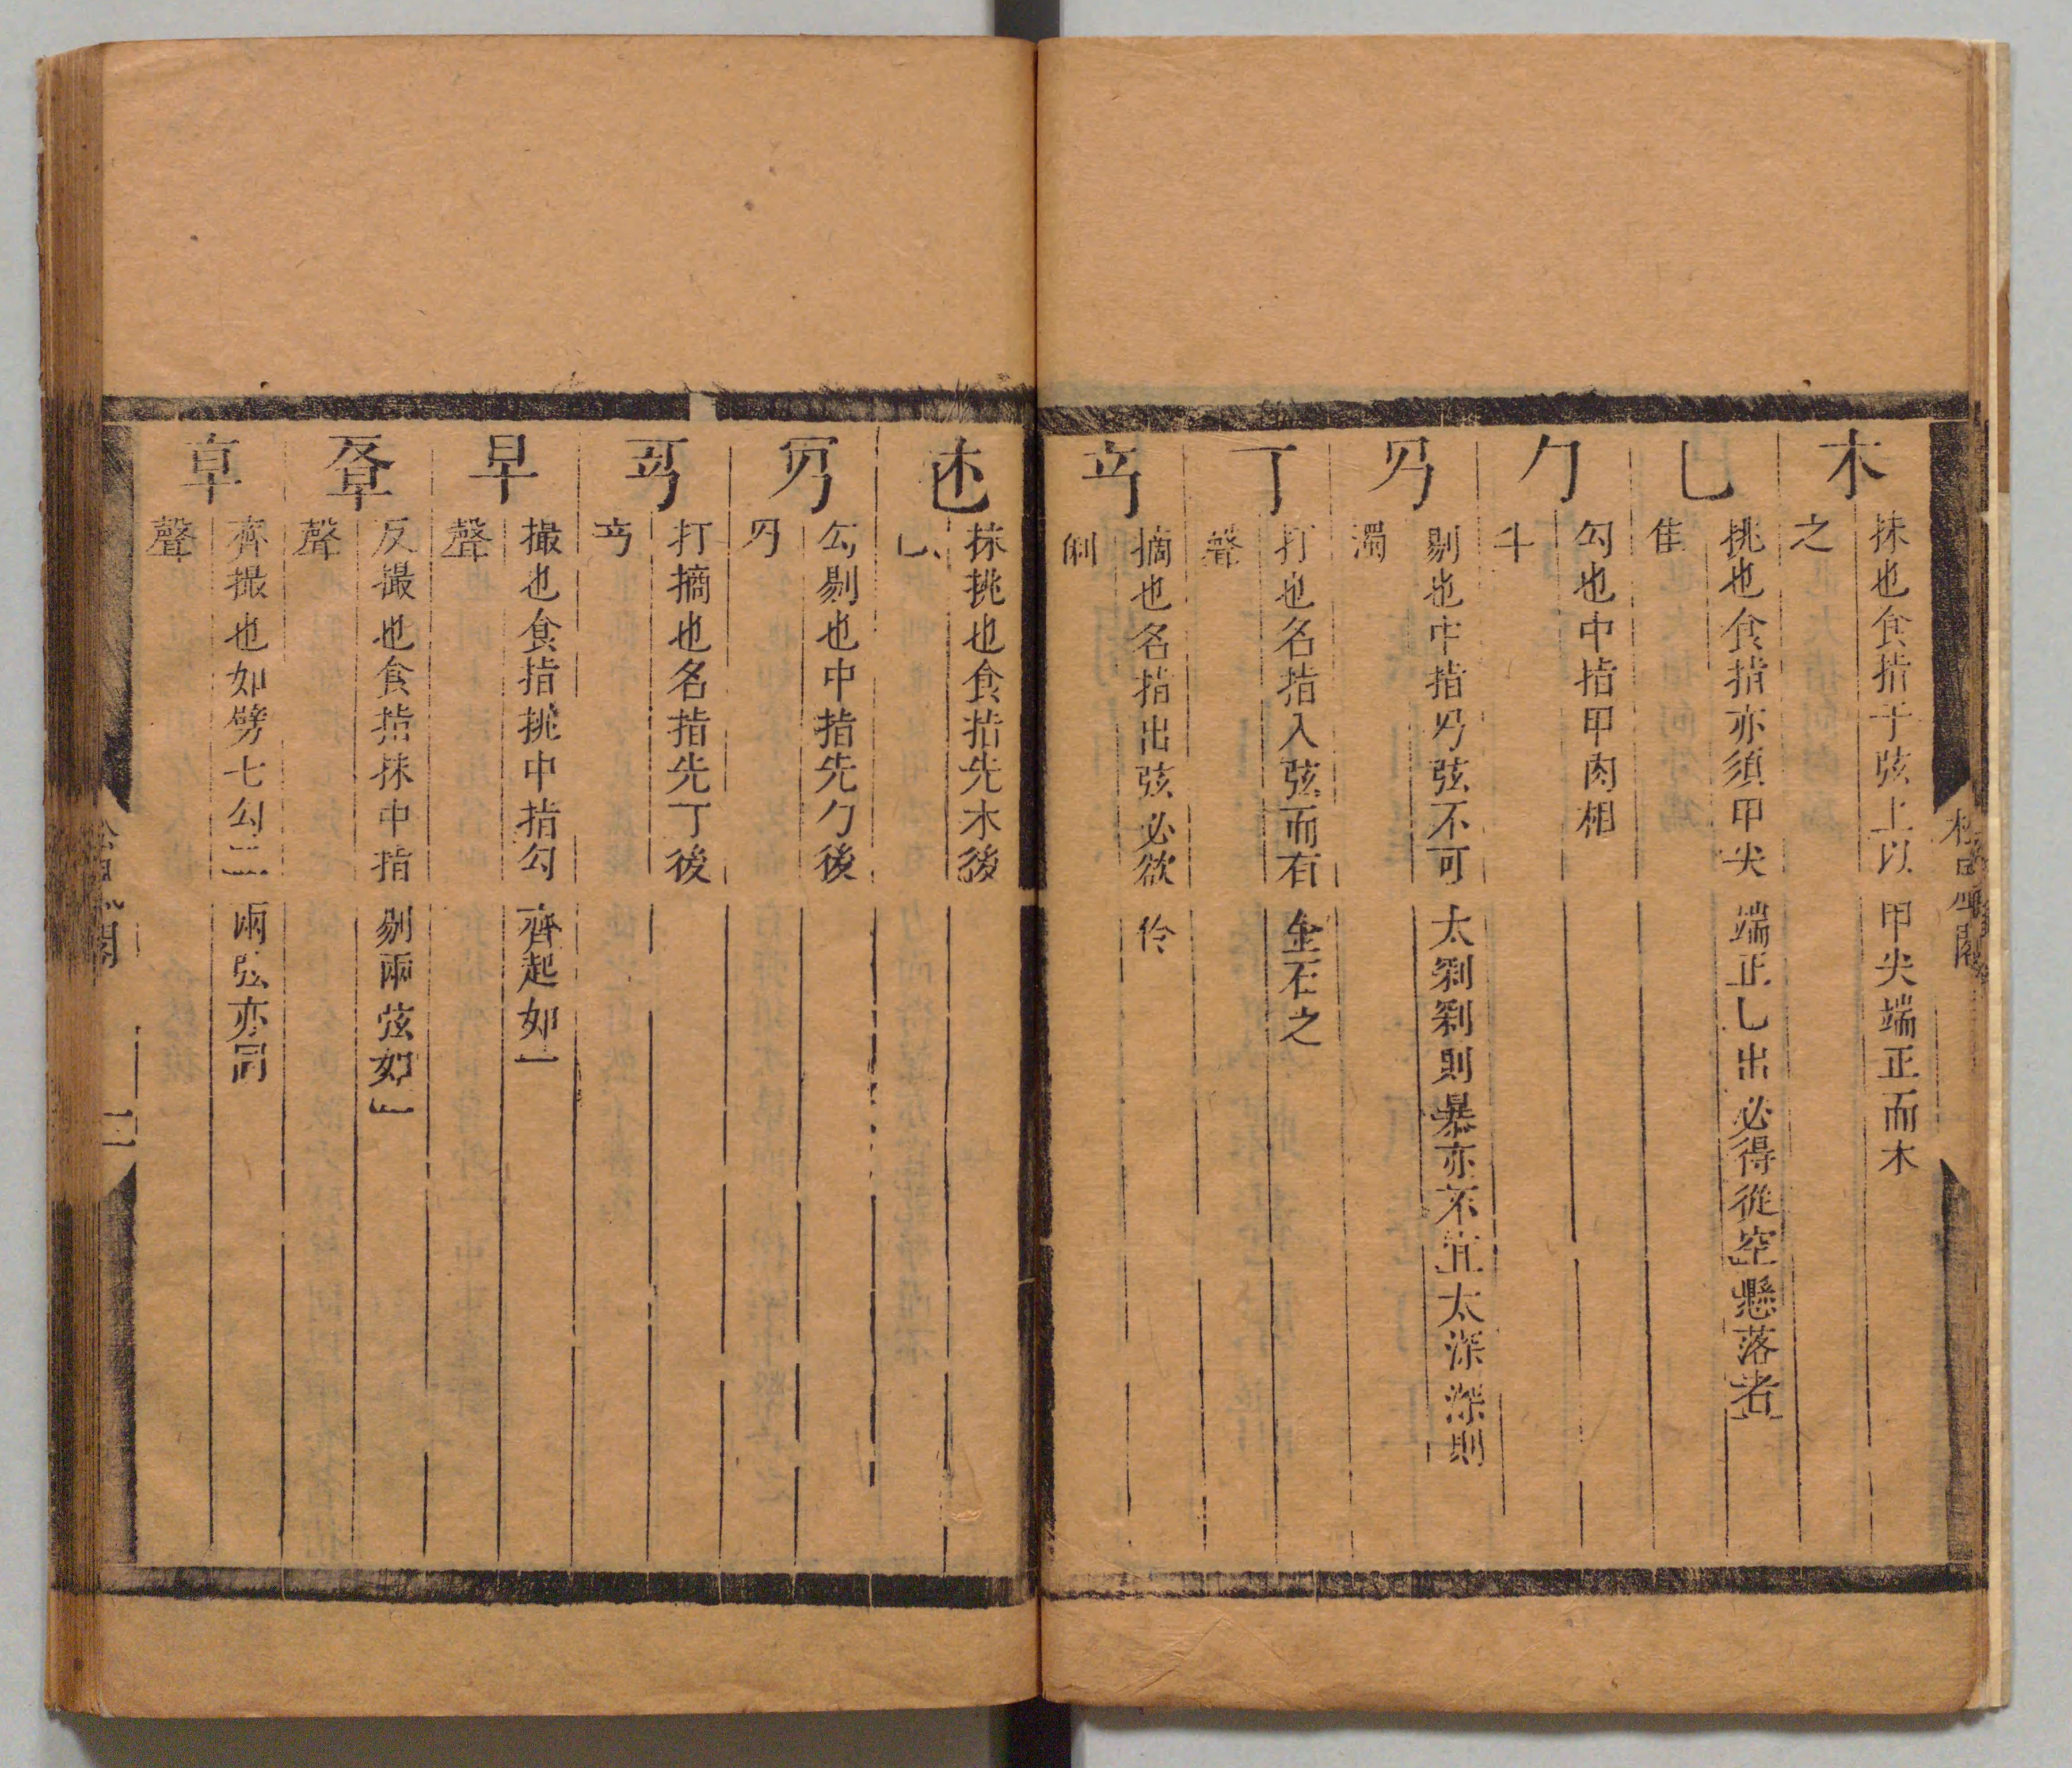 木
抹也食指于弦上以甲尖端正而木
之
乚
挑也食指亦須甲尖端正乚出必得從空懸落者
佳
勹
勾也中指甲肉相
半
剔也中指乃弦不可太剁剁則暴亦不宜太深深則
濁
丁
打也名指入弦而有金石之
聲
摘也名指出弦必欲伶
俐
抹挑也食指先木後
乚
勾剔也中指先勹後
打摘也名指先丁後
早
撮也食指挑中指勾齊起如一
聲
反撮也食指抹中指剔兩弦如一
聲
齊撮也如劈七勾二兩弦亦同
聲
二